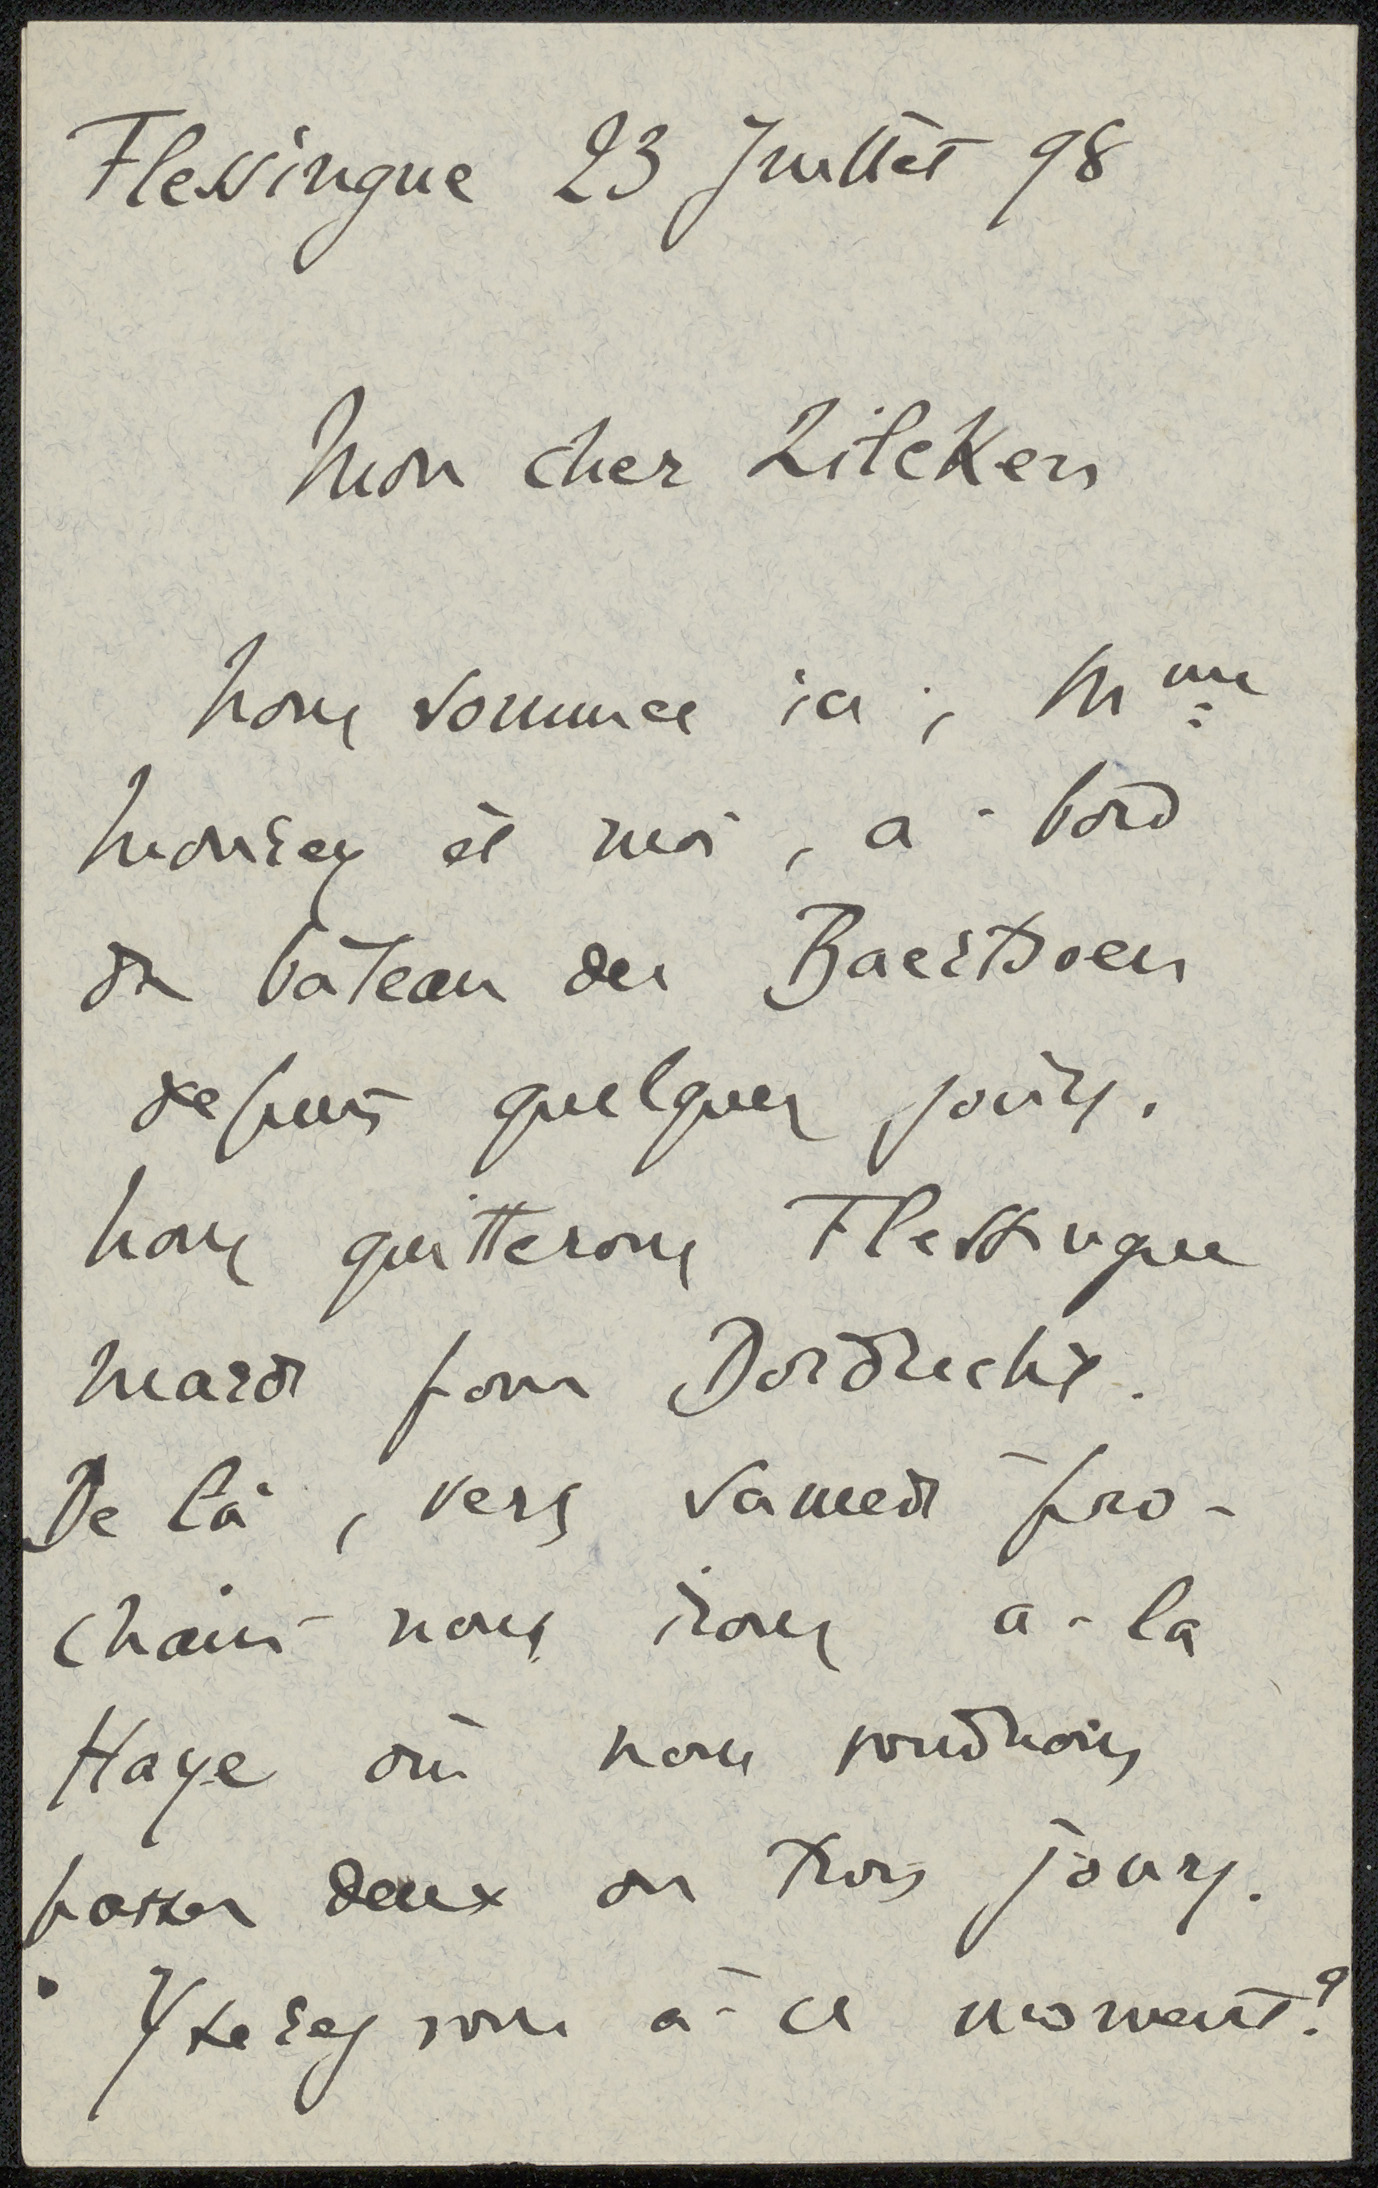 Flessingue 23 Juillet 98
Mon cher Zilcken
Nous sommes ici, Mme
Mourey et moi, à bord
du bateau des Baertsoen
depuis quelques jours.
Nous quitterons Flessingue
mardi pour Dordrecht.
De là, vers samedi pro-
chain nous irons à la
Haye où nous voudrions
passer deux ou trois jours.
Y serez vous à ce moment?